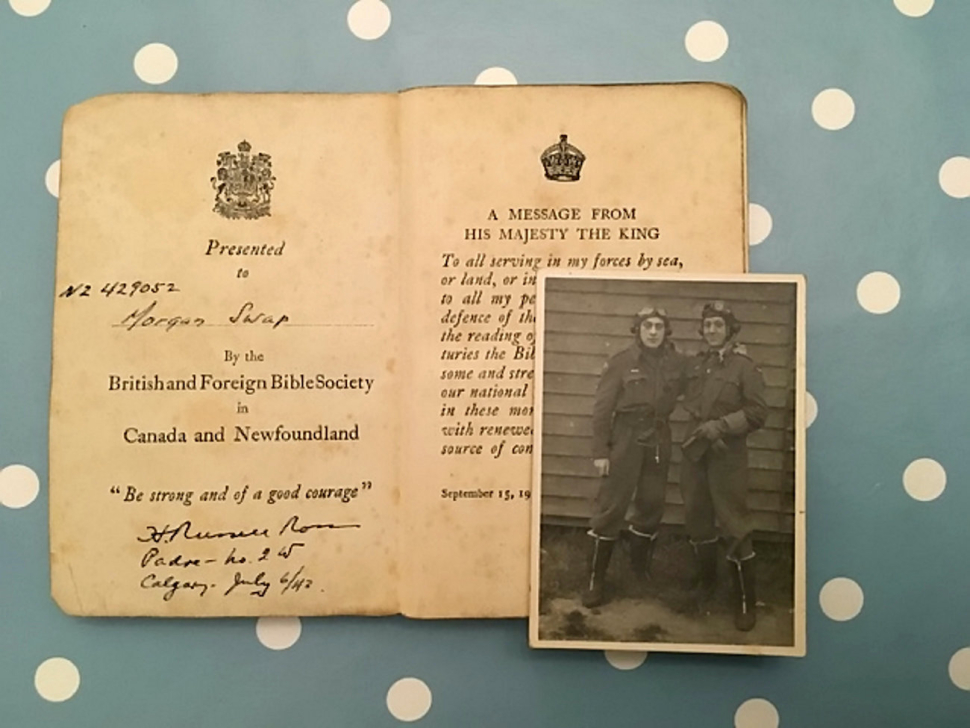 Presented
to
NZ 429052
Morgan Swap
By the
British and Foreign Bible Society
in
Canada and Newfoundland
"Be strong and of a good courage"
H. Russell Ross
Padre – No. 2 W
Calgary. July 6/42.
A MESSAGE FROM
HIS MAJESTY THE KING
To all serving in my forces by sea,
or land, or in
to all my
defence of
the reading
turies the
some and
our national
in these
with
source of
September 15,